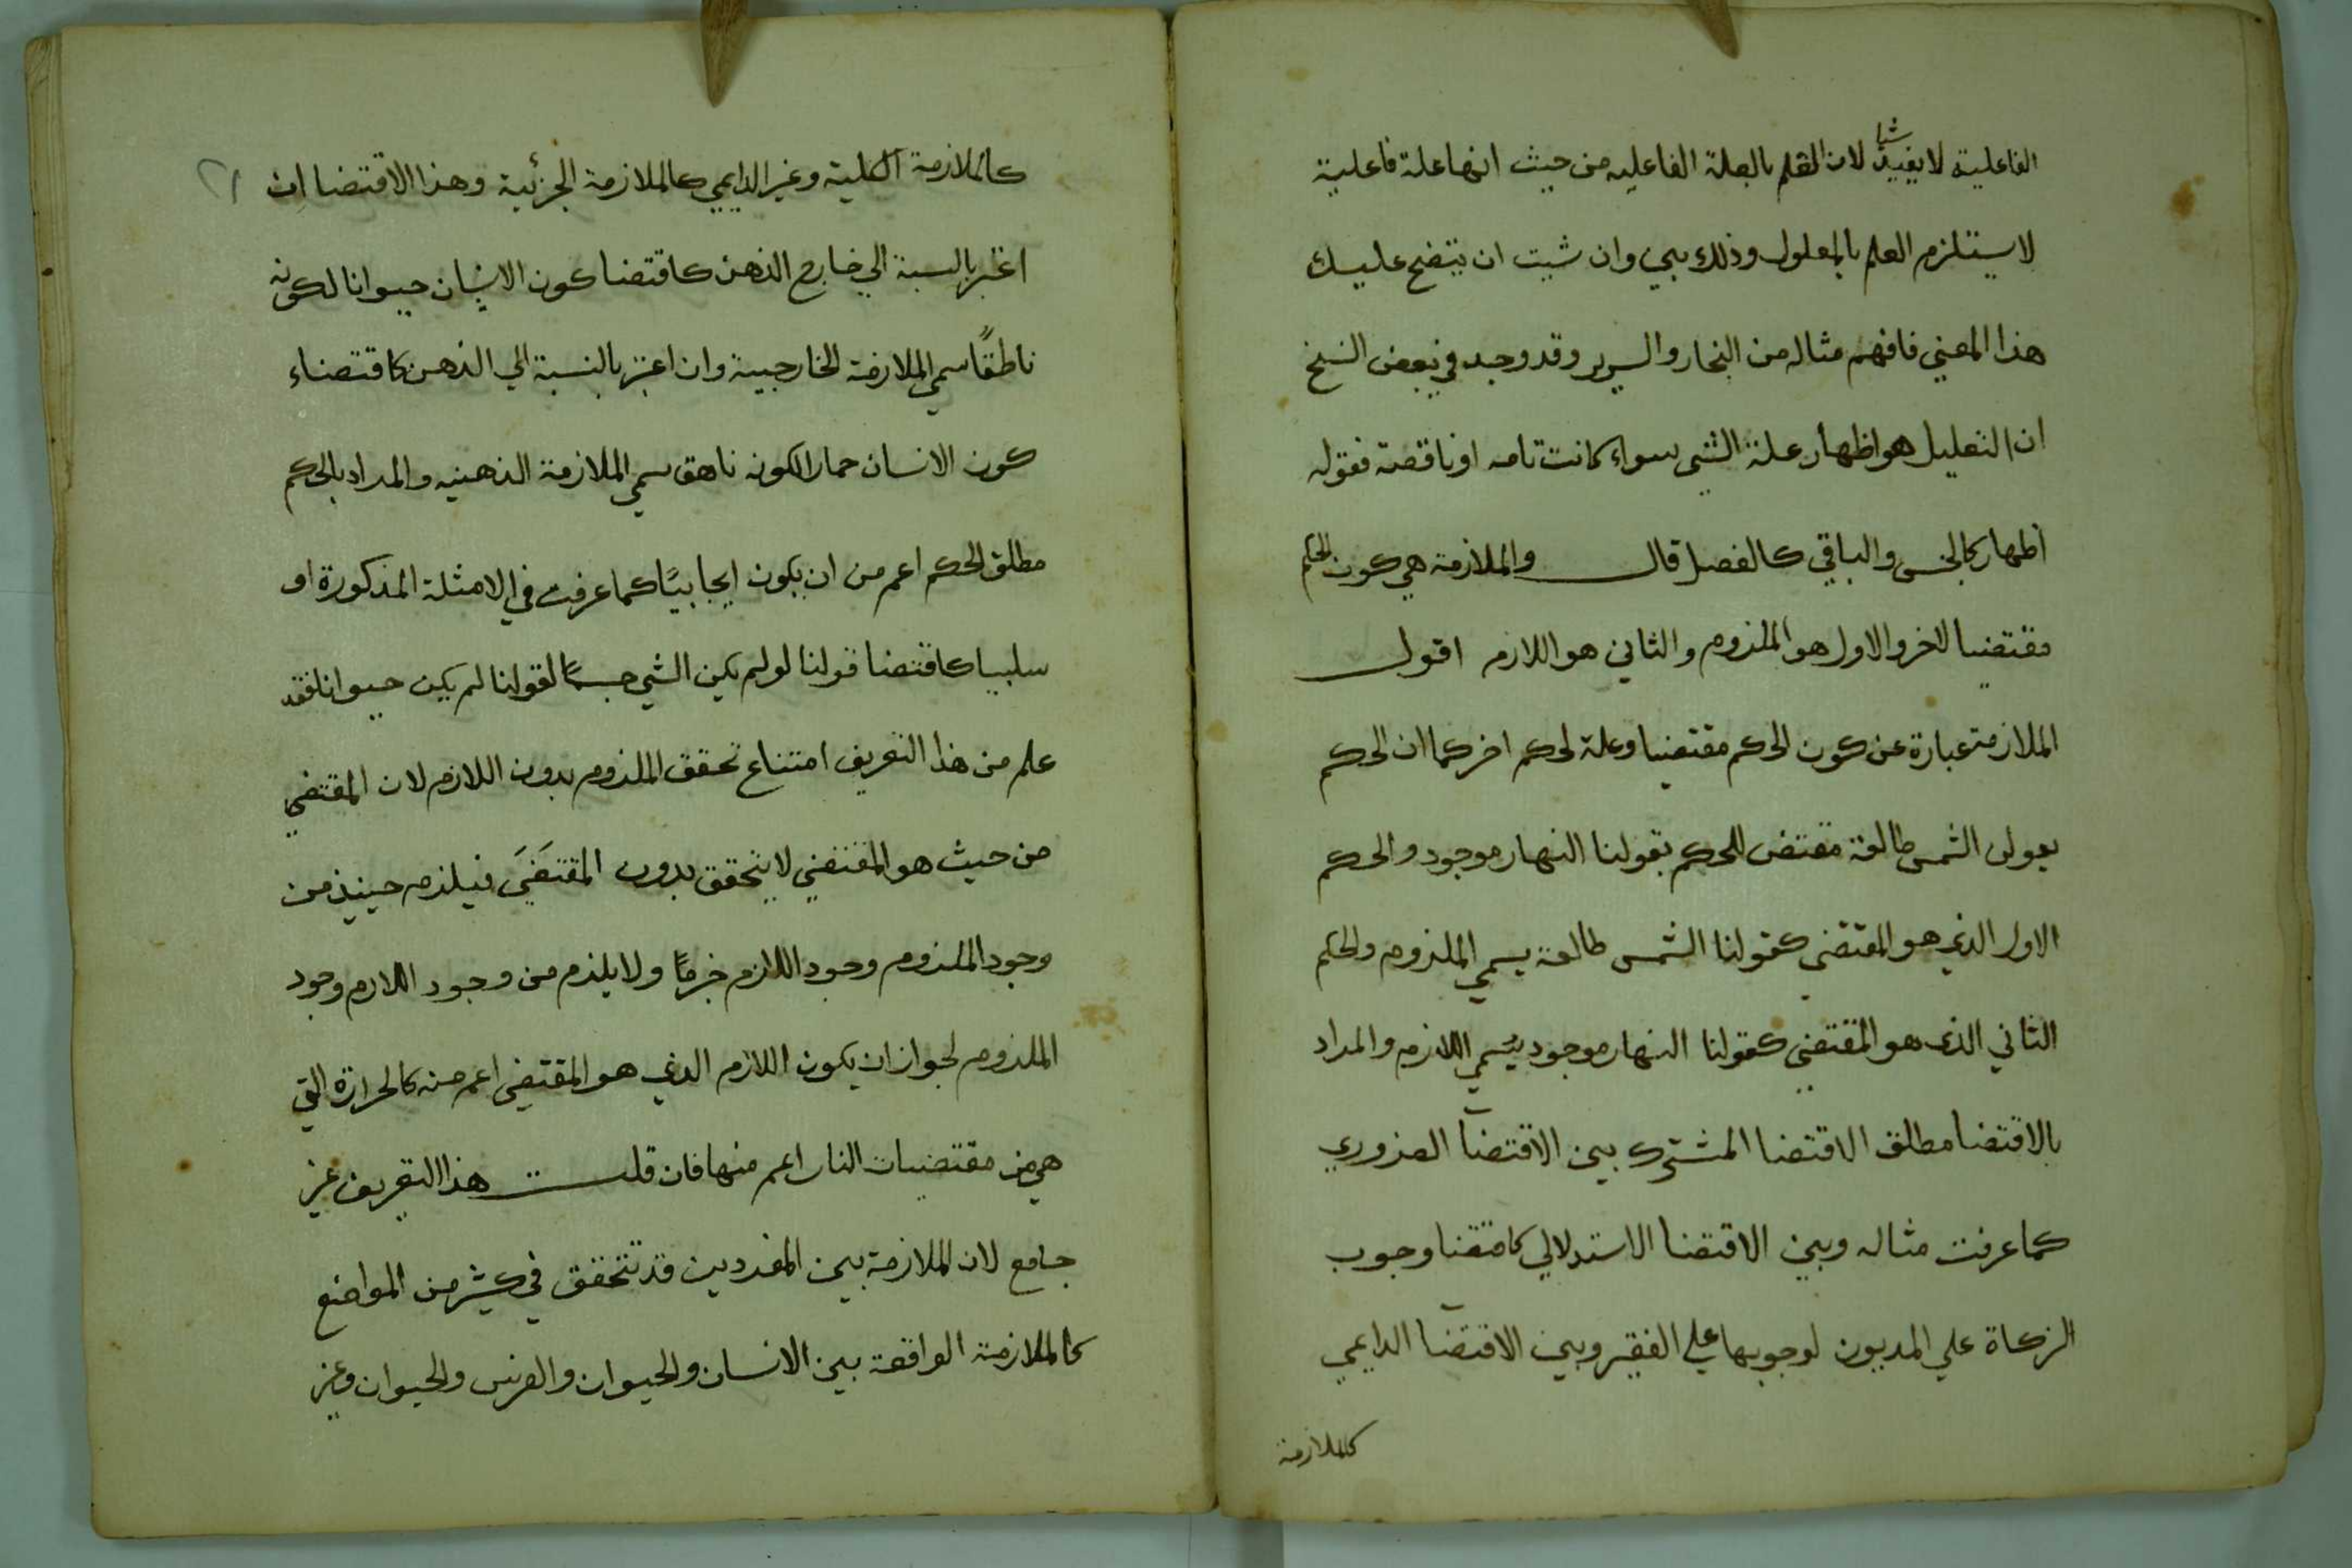 الفاعلية لا يفيد شيا لان العلم بالعلة الفاعليه من حيث انها علة فاعلية
لا يستلزم العلم بالمعلول وذلك بين وان شيت ان يتضح عليك
هذا المعني فافهم مثاله من النجار والسرير وقد وجد في بعض النسخ
ان التعليل هو اظهار علة الشي سواء كانت تامه او ناقصة فقوله
اظهار كالجنس والباقي كالفصل قال والملازمة هي كون الحكم
مقتضيا لاخر والاول هو الملزوم والثاني هو اللازم اقول
الملازمة عبارة عن كون الحكم مقتضيا وعلة لحكم اخر كما ان الحكم
بعولن الشمس طالعة مقتض للحكم بقولنا النهار موجود والحكم
الاول الذي هو المقتضي كقولنا الشمس طالعة يسمي الملزوم والحكم
الثاني الذي هو المقتضي كقولنا النهار موجود يسمي اللازم والمراد
بالاقتضا مطلق الاقتضا المشترك بين الاقتضآ الضروري
كما عرفت مثاله وبين الاقتضا الاستدلالي كاقتضا وجوب
الزكاة علي المديون لوجوبها علي الفقير وبين الاقتضآ الدايمي
كالملازمة
٢١
كالملازمة الكلية وغير الدايمي كالملازمة الجزئية وهذا الاقتضا ان
اعتبر بالنسبة الي خارج الذهن كاقتضا كون الانسان حيوانا لكونه
ناطقًا سمي الملازمة الخارجيية وان اعتبر بالنسبة الي الذهن كاقتضاء
كون الانسان حمارا لكونه ناهق سمي الملازمة الذهنيه والمراد بالحكم
مطلق الحكم اعم من ان يكون ايجابيًا كما عرفت في الامثلة المذكورة او
سلبيا كاقتضا قولنا لو لم يكن الشي جسمًا لقولنا لم يكن حيوانا فقد
علم من هذا التعريف امتناع تحقق الملزوم بدون اللازم لان المقتضي
من حيث هو المقتضي لا يتحقق بدون المقتضَي فيلزم حينيذ من
وجود الملزوم وجود اللازم جزمًا ولا يلزم من وجود اللازم وجود
الملزوم لجواز ان يكون اللازم الذي هو المقتضي اعم منه كالحرارة التي
هي من مقتضيات النار اعم منها فان قلت هذا التعريف غير
جامع لان الملازمة بين المفردين قد تتحقق في كثير من المواضع
كالملازمة الواقعة بين الانسان والحيوان والفرس والحيوان وغير